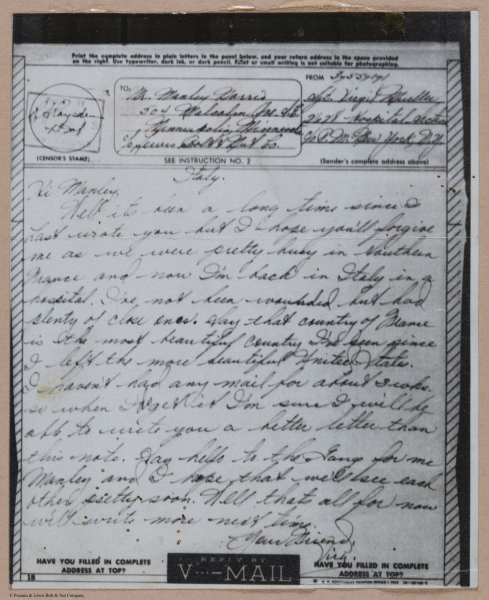 Print the complete address in plain letters in the panel below, and your return address in the space provided
on the right. Use typewriter, dark ink, or dark pencil. Faint or small writing is not suitable for photographing.
TO:
FROM
Mr. Manley
Sgt. Virgil
504 Malcolm Ave. S.E.
Hospital Section
New York, N.Y.
(CENSOR'S STAMP)
SEE INSTRUCTION NO. 2
(Sender's complete address above)
Italy.
Hi Manley,
Well it's been a long time since I
last wrote you but I hope you'll forgive
me as we were pretty busy in Southern
France and now I'm back in Italy in a
hospital. I've not been wounded but had
plenty of close ones. Say that country of France
is the most beautiful country I've seen since
I left the more beautiful United States.
I haven't had any mail for about 3 wks.
so when I do get it I'm sure I will be
able to write you a better letter than
this note. Say hello to the Gang for me
Manley and I hope that we'll see each
other pretty soon. Well that's all for now
will write more next time.
Your Friend,
HAVE YOU FILLED IN COMPLETE
ADDRESS AT TOP?
REPLY BY
V···—MAIL
HAVE YOU FILLED IN COMPLETE
ADDRESS AT TOP?